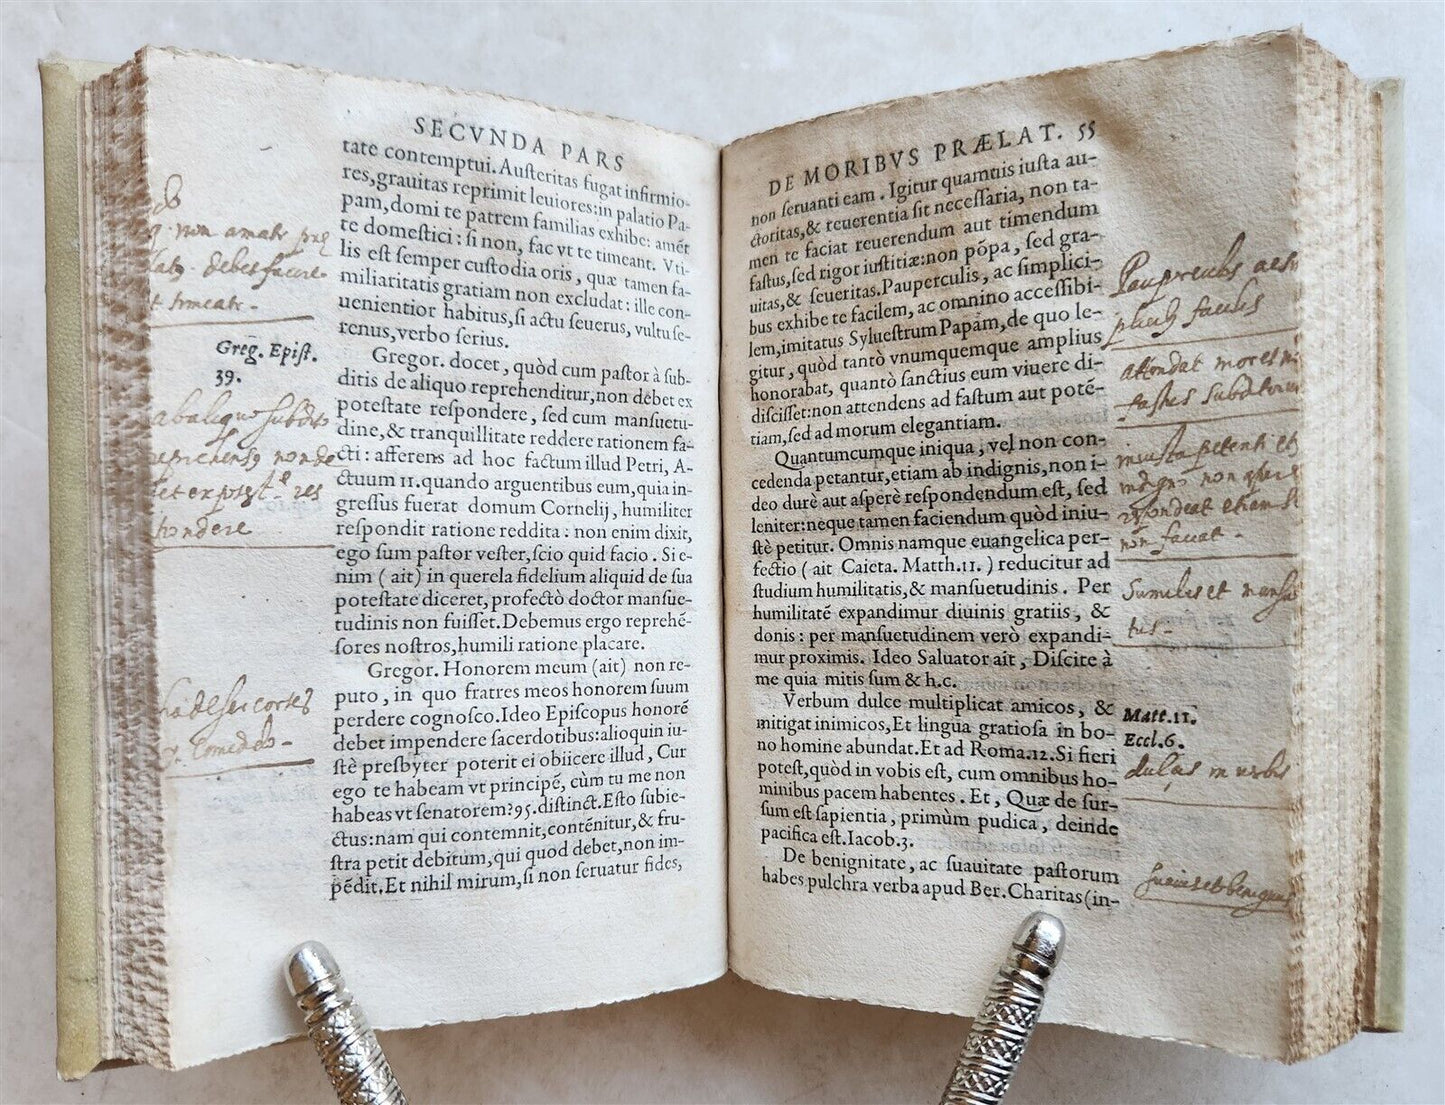 SECVNDA PARS
tate contemptui. Auſteritas fugat infirmio-
res, grauitas reprimit leuiores: in palatio Pa-
pam, domi te patrem familias exhibe: amẽt
te domeſtici: ſi non, fac vt te timeant. Vti-
lis eſt ſemper cuſtodia oris, quæ tamen fa-
miliaritatis gratiam non excludat: ille con-
uenientior habitus, ſi actu ſeuerus, vultu ſe-
renus, verbo ſerius.
Gregor. docet, quòd cum paſtor à ſub-
ditis de aliquo reprehenditur, non debet ex
poteſtate reſpondere, ſed cum manſuetu-
dine, & tranquillitate reddere rationem fa-
cti: afferens ad hoc factum illud Petri, A-
ctuum 11. quando arguentibus eum, quia in-
greſſus fuerat domum Cornelij, humiliter
reſpondit ratione reddita: non enim dixit,
ego ſum paſtor veſter, ſcio quid facio. Si e-
nim (ait) in querela fidelium aliquid de ſua
poteſtate diceret, profectò doctor manſue-
tudinis non fuiſſet. Debemus ergo reprehẽ-
ſores noſtros, humili ratione placare.
Gregor. Honorem meum (ait) non re-
puto, in quo fratres meos honorem ſuum
perdere cognoſco. Ideo Epiſcopus honorẽ
debet impendere ſacerdotibus: alioquin iu-
ſtè preſbyter poterit ei obiicere illud, Cur
ego te habeam vt principẽ, cùm tu me non
habeas vt ſenatorem? 95. diſtinct. Eſto ſubie-
ctus: nam qui contemnit, contẽnitur, & fru-
ſtra petit debitum, qui quod debet, non im-
pẽdit. Et nihil mirum, ſi non ſeruatur fides,
non amatr
debes facere
et timeatr -
Greg. Epiſt.
39.
ab aliquo subdito
non de
et ex potest.te res
pondere
DE MORIBVS PRÆLAT. 55
non ſeruanti eam. Igitur quamuis iuſta au-
ctoritas, & reuerentia ſit neceſſaria, non ta-
men te faciat reuerendum aut timendum
faſtus, ſed rigor iuſtitiæ: non põpa, ſed gra-
uitas, & ſeueritas. Pauperculis, ac ſimplici-
bus exhibe te facilem, ac omnino acceſſibi-
lem, imitatus Sylueſtrum Papam, de quo le-
gitur, quòd tantò vnumquemque amplius
honorabat, quantò ſanctius eum viuere di-
diſciſſet: non attendens ad faſtum aut potẽ-
tiam, ſed ad morum elegantiam.
Quantumcumque iniqua, vel non con-
cedenda petantur, etiam ab indignis, non i-
deo durè aut aſperè reſpondendum eſt, ſed
leniter: neque tamen faciendum quòd iniu-
ſtè petitur. Omnis namque euangelica per-
fectio (ait Caieta. Matth. 11.) reducitur ad
ſtudium humilitatis, & manſuetudinis. Per
humilitatẽ expandimur diuinis gratiis, &
donis: per manſuetudinem verò expandi-
mur proximis. Ideo Saluator ait, Diſcite à
me quia mitis ſum & h.c.
Verbum dulce multiplicat amicos, &
mitigat inimicos, Et lingua gratioſa in bo-
no homine abundat. Et ad Roma. 12. Si fieri
poteſt, quòd in vobis eſt, cum omnibus ho-
minibus pacem habentes. Et, Quæ de ſur-
ſum eſt ſapientia, primùm pudica, deinde
pacifica eſt. Iacob. 3.
De benignitate, ac ſuauitate paſtorum
habes pulchra verba apud Ber. Charitas (in-
Pauperculis
facilis
attendat mores
subditorum
iniusta petenti et
indigno non
respondeat etiam si
non faciat -
humilis et mansue
tus -
Matt. 11.
Eccl. 6.
dulcis in verbis
suauis et benignus